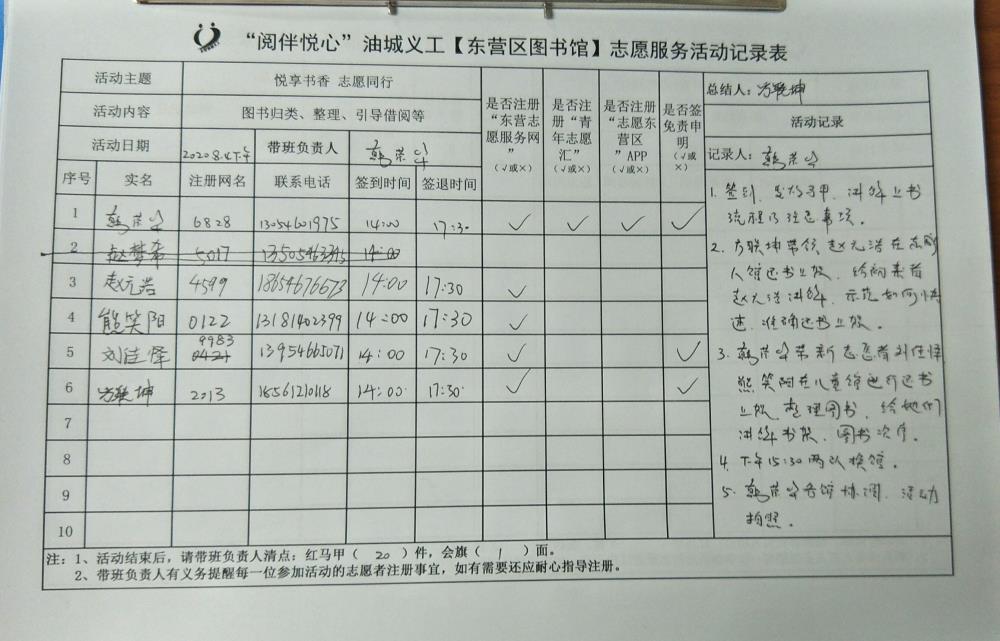 “阅伴悦心”油城义工【东营区图书馆】志愿服务活动记录表
活动主题 悦享书香 志愿同行
活动内容 图书归类、整理、引导借阅等
活动日期 2020.8.4下午 带班负责人 韩荣华
是否注册“东营志愿服务网”（√或×）
是否注册“青年志愿汇”（√或×）
是否注册“志愿东营区”APP（√或×）
是否签免责申明（√或×）
序号 实名 注册网名 联系电话 签到时间 签退时间
1 韩荣华 6828 13054601975 14:00 17:30 √ √ √ √
2 赵梦希 5017 14:00
3 赵元浩 4599 18654676673 14:00 17:30 √
4 熊笑阳 0122 13181402399 14:00 17:30 √
5 刘佳怿 9983 0421 13954665071 14:00 17:30 √ √
6 方联坤 2013 18561210118 14:00 17:30 √ √
7
8
9
10
总结人：方联坤
活动记录
记录人：韩荣华
1. 签到、发放马甲、讲解上书
流程及注意事项。
2. 方联坤带领赵元浩在
人馆还书上架，给
赵元浩讲解、示范如何快
速、准确还书上架。
3. 韩荣华带新志愿者刘佳怿
熊笑阳在儿童馆进行还书
上架、整理图书，给她们
讲解书架、图书次序。
4. 下午15:30两队换馆。
5. 韩荣华各馆协调、活动
拍照。
注：1、活动结束后，请带班负责人清点：红马甲（ 20 ）件，会旗（ 1 ）面。
2、带班负责人有义务提醒每一位参加活动的志愿者注册事宜，如有需要还应耐心指导注册。